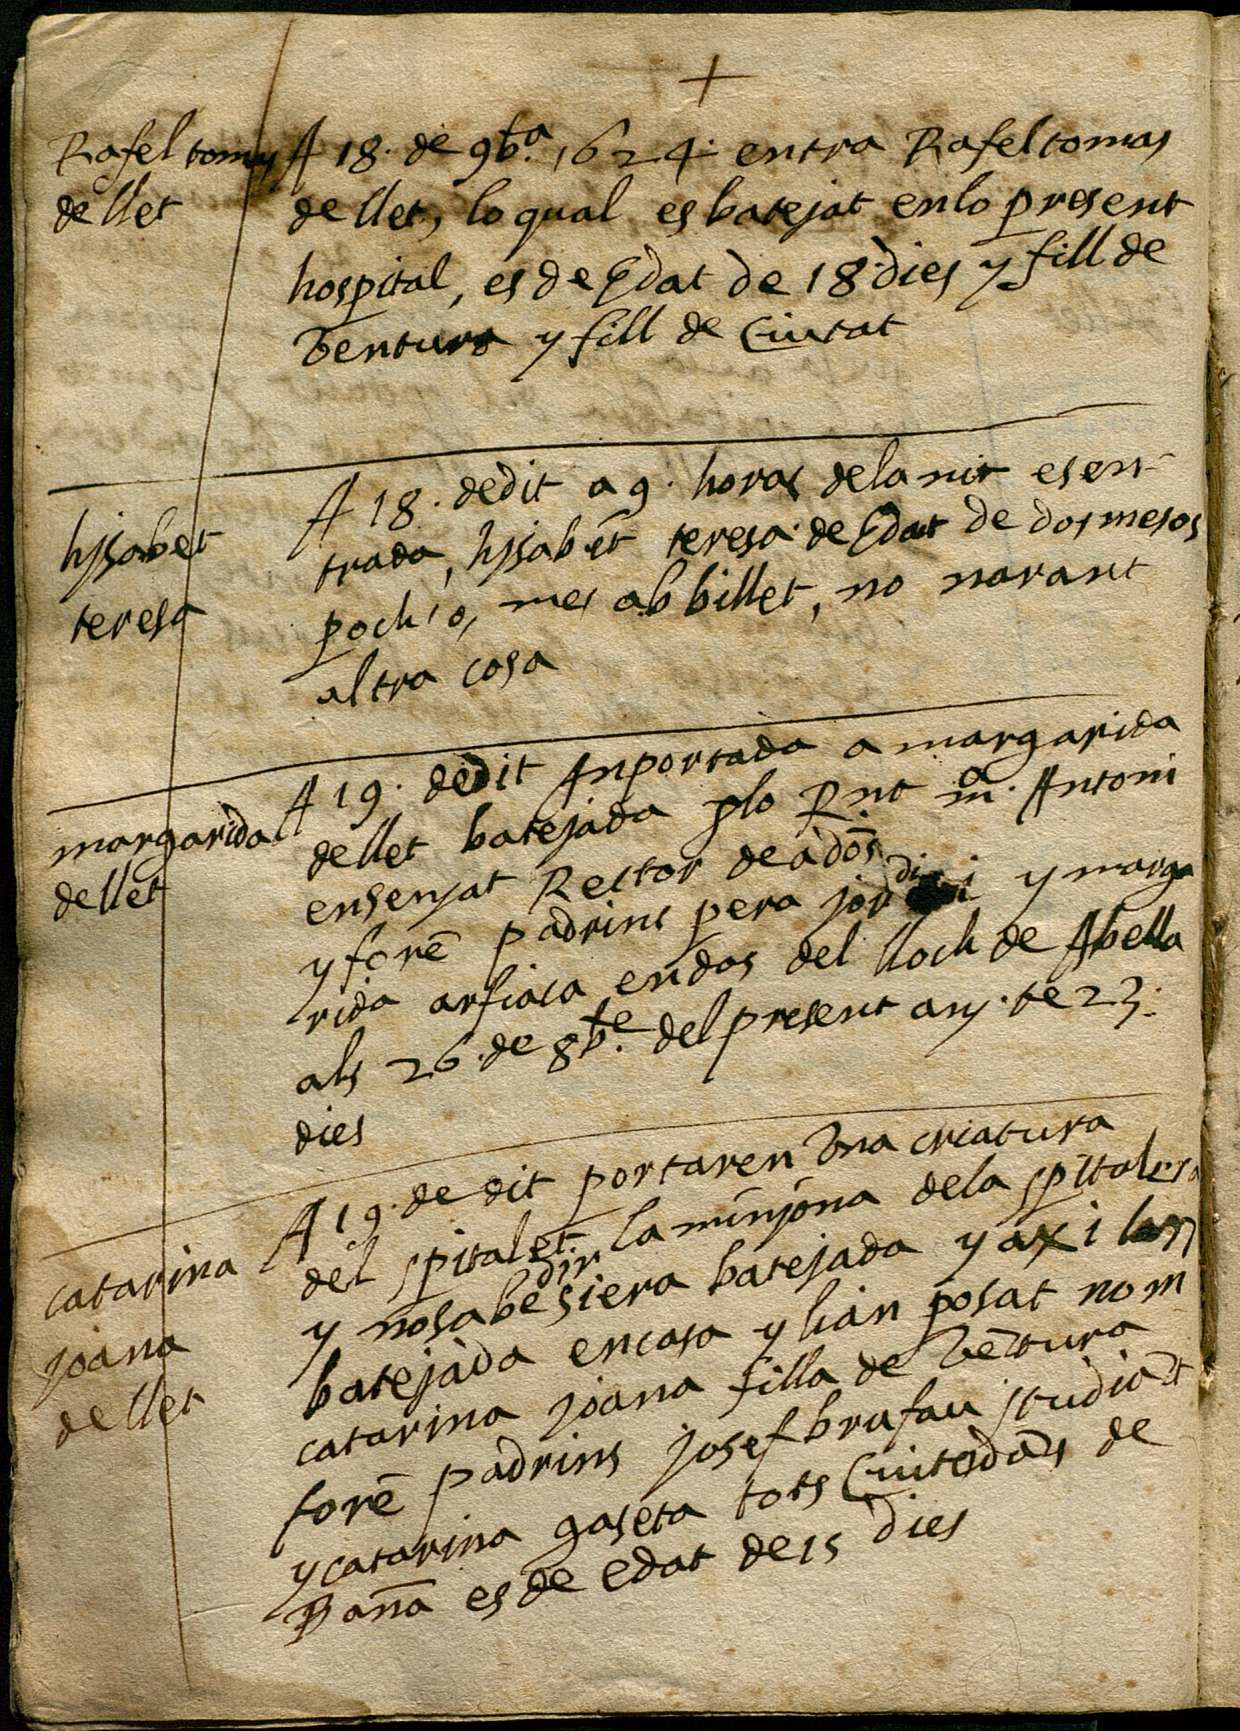 +
Rafel tomas
de llet
A 18. de 9b.ra 1624. entra Rafel tomas
de llet, lo qual es batejat en lo present
hospital, es de Edat de 18. dies y fill de
Ventura y fill de Ciutat
hjsabet
teresa
A 18. de dit a 9. horas de la nit es en-
trada, hjsabet teresa de Edat de dos mesos
poch 1o, mes ab billet, no narant
altra cosa
margarida
de llet
A 19. de dit Anportada a margarida
de llet batejada plo R.nt m.o Antoni
ensenjat Rector de ados
y forē padrins pera jordi y marga
rida arfiaca endos del lloch de Abella
als 26. de 8b.re del present any. te 23.
dies
catarina
joana
de llet
A 19. de dit portaren Vna criatura
del spitalet la minjona de la spitalera
y no sabe dir si era batejada y axi lan
batejada en casa y lian posat nom
catarina joana filla de Vētura
forē padrins josef brufau studiāt
y catarina gaseta tots Ciutedās de
Barña es de Edat de 15 dies